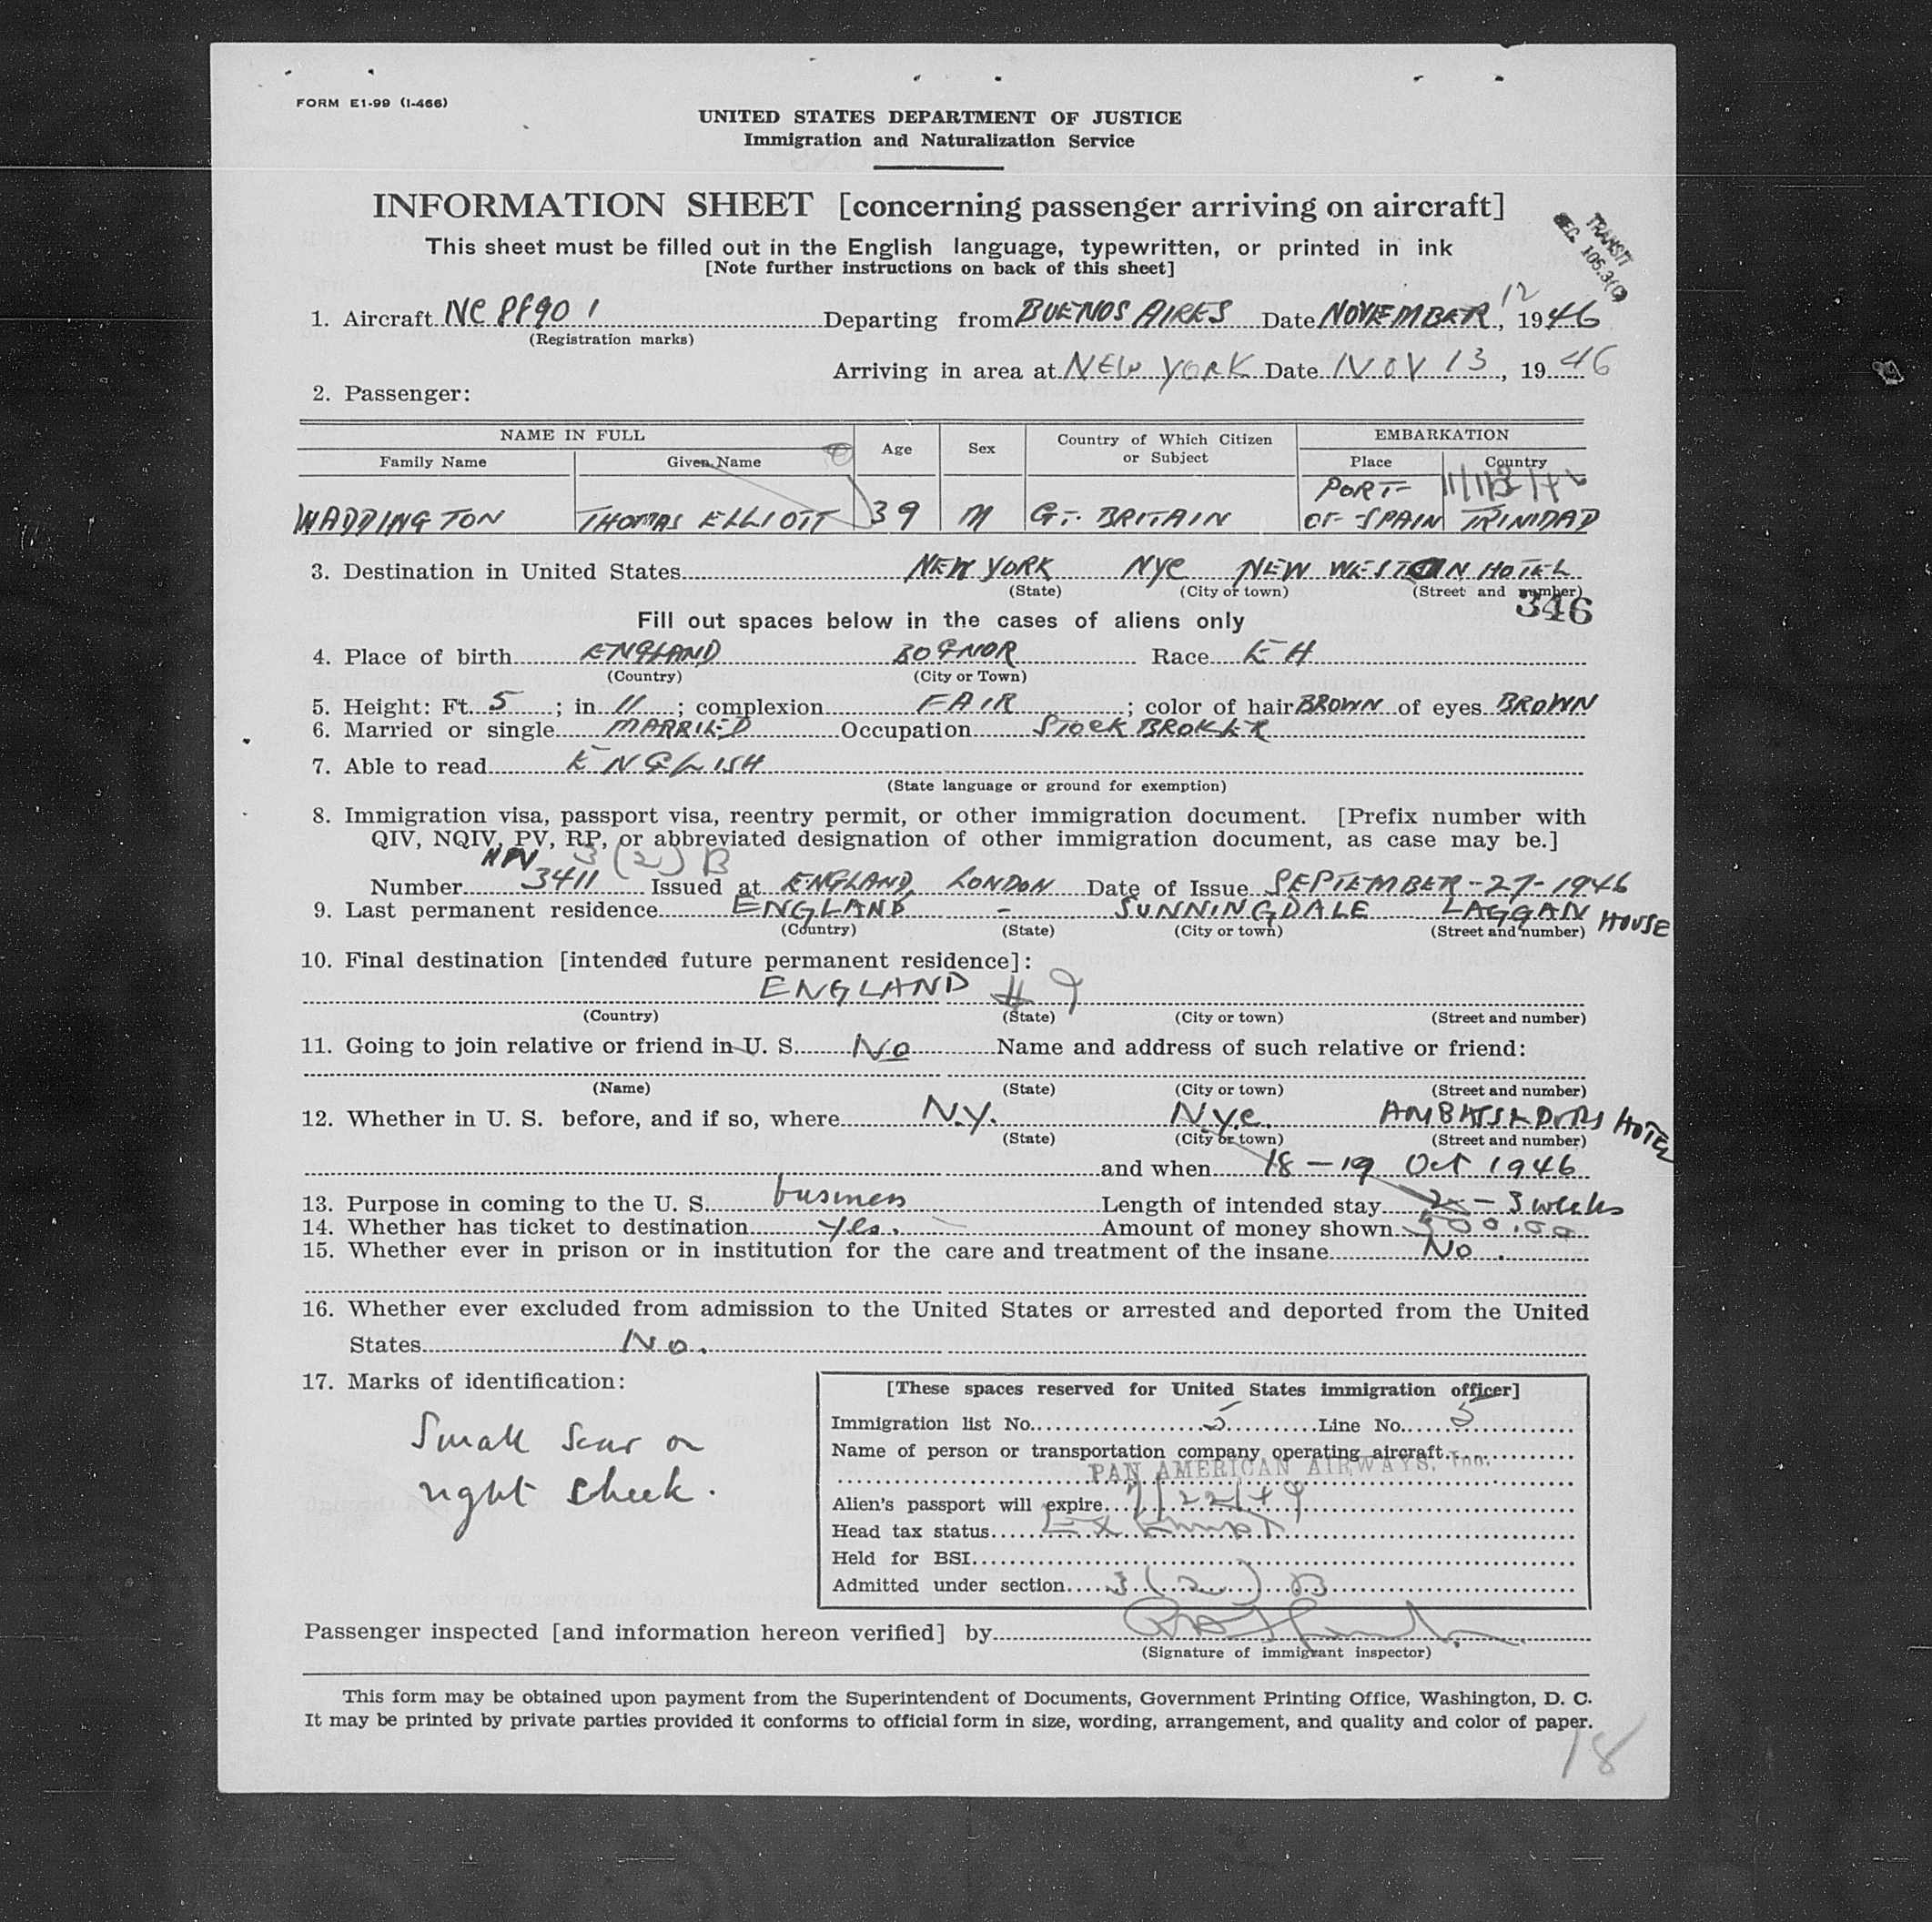 FORM E1-99 (I-466)
UNITED STATES DEPARTMENT OF JUSTICE
Immigration and Naturalization Service
INFORMATION SHEET [concerning passenger arriving on aircraft]
TRANSIT
SEC. 105.3(C)
This sheet must be filled out in the English language, typewritten, or printed in ink
[Note further instructions on back of this sheet]
1. Aircraft NC 88901 Departing from BUENOS AIRES Date NOVEMBER 12, 1946
(Registration marks)
Arriving in area at NEW YORK Date NOV 13, 1946
2. Passenger:
NAME IN FULL Age Sex Country of Which Citizen or Subject EMBARKATION
Family Name Given Name Place Country
WADDINGTON THOMAS ELLIOTT 39 M GT. BRITAIN PORT OF SPAIN TRINIDAD
3. Destination in United States NEW YORK NYC NEW WESTON HOTEL
(State) (City or town) (Street and number)
346
Fill out spaces below in the cases of aliens only
4. Place of birth ENGLAND BOGNOR Race EH
(Country) (City or Town)
5. Height: Ft. 5; in 11; complexion FAIR; color of hair BROWN of eyes BROWN
6. Married or single MARRIED Occupation STOCK BROKER
7. Able to read ENGLISH
(State language or ground for exemption)
8. Immigration visa, passport visa, reentry permit, or other immigration document. [Prefix number with
QIV, NQIV, PV, RP, or abbreviated designation of other immigration document, as case may be.]
NPV 3(2)B
Number 3411 Issued at ENGLAND, LONDON Date of Issue SEPTEMBER-27-1946
9. Last permanent residence ENGLAND - SUNNINGDALE LAGGAN HOUSE
(Country) (State) (City or town) (Street and number)
10. Final destination [intended future permanent residence]:
ENGLAND # 9
(Country) (State) (City or town) (Street and number)
11. Going to join relative or friend in U. S. No Name and address of such relative or friend:
(Name) (State) (City or town) (Street and number)
12. Whether in U. S. before, and if so, where N.Y. N.Y.C. AMBASSADORS HOTEL
(State) (City or town) (Street and number)
and when 18-19 Oct 1946
13. Purpose in coming to the U. S. business Length of intended stay 2-3 weeks
14. Whether has ticket to destination Yes. Amount of money shown 500.00
15. Whether ever in prison or in institution for the care and treatment of the insane No.
16. Whether ever excluded from admission to the United States or arrested and deported from the United
States No.
17. Marks of identification:
Small scar on
right cheek.
[These spaces reserved for United States immigration officer]
Immigration list No. 5 Line No. 5
Name of person or transportation company operating aircraft
PAN AMERICAN AIRWAYS, Inc.
Alien's passport will expire
Head tax status Exempt
Held for BSI
Admitted under section 3(2)B
Passenger inspected [and information hereon verified] by
(Signature of immigrant inspector)
This form may be obtained upon payment from the Superintendent of Documents, Government Printing Office, Washington, D. C.
It may be printed by private parties provided it conforms to official form in size, wording, arrangement, and quality and color of paper.
18